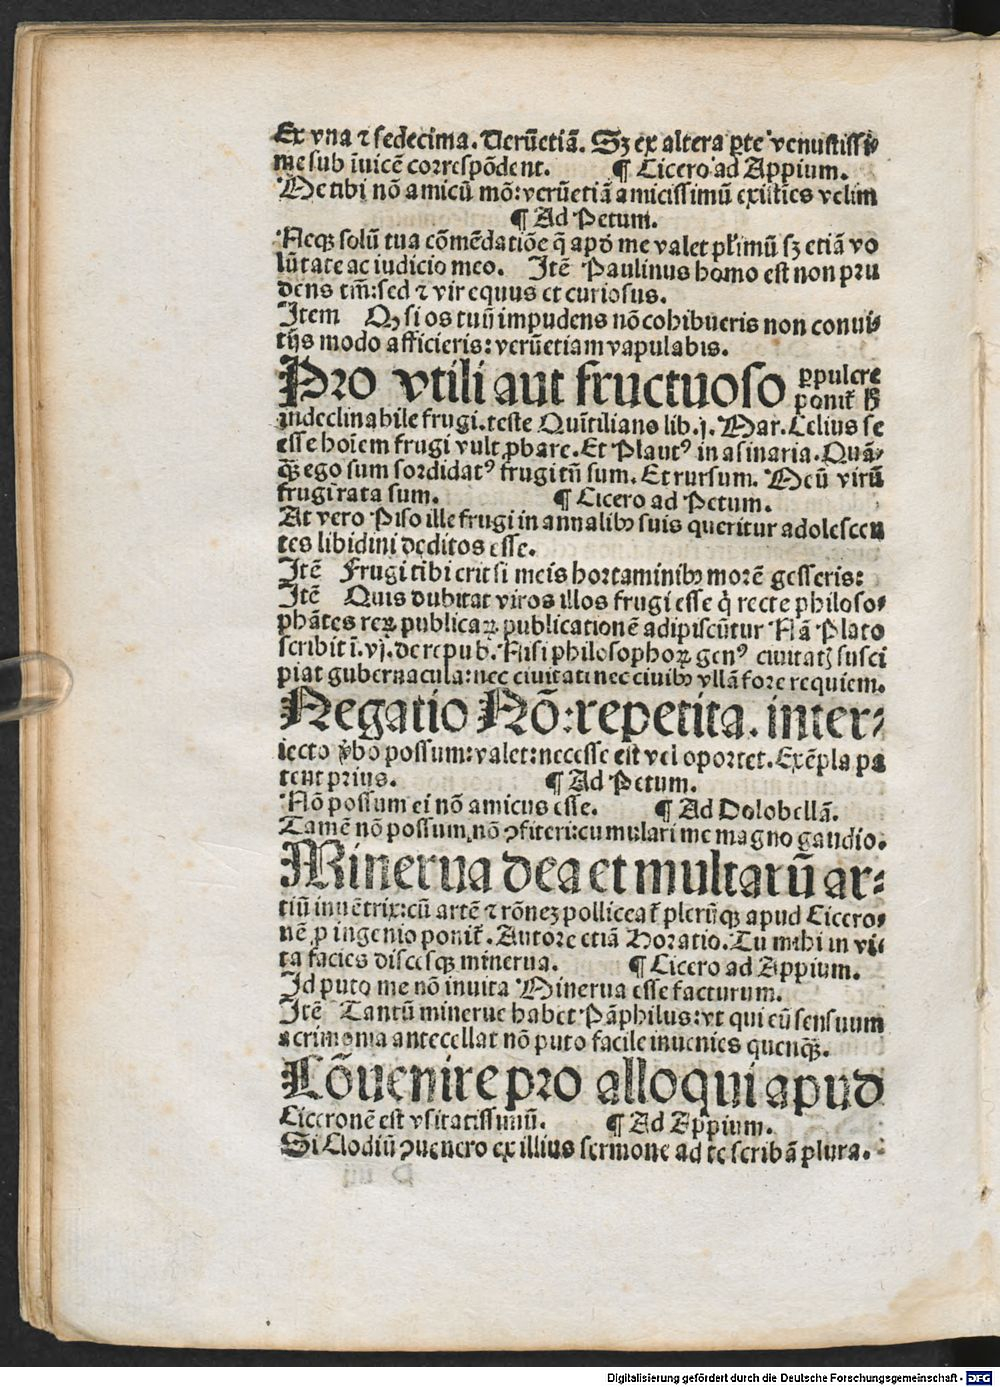 Ex vna ⁊ sedecima. Uerūetiā. Sꝫ ex altera ꝑte venustissi⸗
me sub īuicē correspōdent. ¶ Cicero ad Appium.
Me tibi nō amicū mō: verūetiā amicissimū existīes velim
¶ Ad Petum.
Neqꝫ solū tua cōmēdatiōe q̄ apd̓ me valet pl̓imū sꝫ etiā vo
lūtate ac iudicio meo. Itē Paulinus homo est non pru
dens tm̄: sed ⁊ vir equus et curiosus.
Item Qꝫ si os tuū impudens nō cohibueris non conui⸗
tijs modo afficieris: verūetiam vapulabis.
Pro vtili aut fructuoso ꝑpulcre
ponit̄ h̓
indeclinabile frugi. teste Quītiliano lib. j. Mar. Celius se
esse hoīem frugi vult ꝓbare. Et Plautꝰ in asinaria. Quā⸗
qꝫ ego sum sordidatꝰ frugi tn̄ sum. Et rursum. Meū virū
frugi rata sum. ¶ Cicero ad Petum.
At vero Piso ille frugi in annalibꝰ suis queritur adolescen
tes libidini deditos esse.
Itē Frugi tibi erit si meis hortaminibꝰ morē gesseris:
Itē Quis dubitat viros illos frugi esse q̇ recte philoso⸗
phātes reꝝ publicaꝝ publicationē adipiscūtur Nā Plato
scribit ī. vj. de repub. Nisi philosophoꝝ genꝰ ciuitatꝭ susci
piat gubernacula: nec ciuitati nec ciuibꝰ vllā fore requiem.
Negatio Nō: repetita. inter⸗
iecto v̓bo possum: valet: necesse est vel oportet. Exēpla pa
tent prius. ¶ Ad Petum.
Nō possum ei nō amicus esse. ¶ Ad Dolobellā.
Tamē nō possum nō ꝯfiteri: cumulari me magno gaudio.
Minerua dea et multarū ar⸗
tiū inuētrix: cū artē ⁊ rōneꝫ polliceat̄ plerūqꝫ apud Cicero⸗
nē ꝓ ingenio ponit̄. Autore etiā Horatio. Tu mihi in vi⸗
ta facies discesqꝫ minerua. ¶ Cicero ad Appium.
Id puto me nō inuita Minerua esse facturum.
Itē Tantū minerue habet Pāphilus: vt qui cū sensuum
acrimonia antecellat nō puto facile inuenies quenqꝫ.
Cōuenire pro alloqui apud
Ciceronē est vsitatissimū. ¶ Ad Appium.
Si Clodiū ꝯuenero ex illius sermone ad te scribā plura.
Digitalisierung gefördert durch die Deutsche Forschungsgemeinschaft - DFG